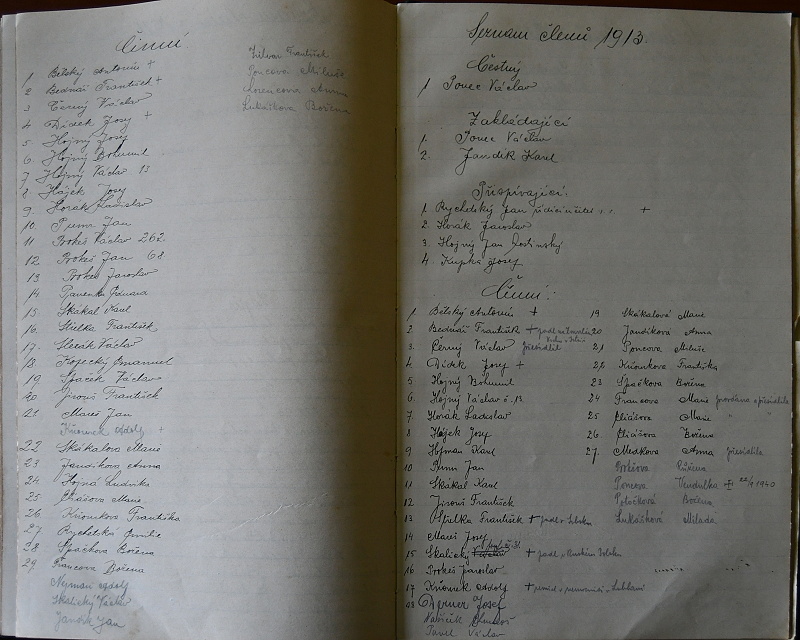 Činní
1 Bělský Antonín +
2 Bednář František +
3 Černý Václav
4 Dídek Josef +
5 Hojný Josef
6 Hojný Bohumil
7 Hojný Václav 13
8 Hájek Josef
9 Horák Ladislav
10. Puna Jan
11 Prokeš Václav 262
12 Prokeš Jan 68
13 Prokeš Jaroslav
14
15 Skákal Karel
16 Střelka František
17. Václav
18. Kopecký Emanuel
19 Špaček Václav
20 Jirouš František
21 Mareš Jan
Kňourek Adolf +
22 Skákalova Marie
23 Jandíkova Anna
24 Hojná Ludvika
25 Marie
26 Kňourkova Františka
27 Rychetská Emilie
28 Špačkova Božena
29 Francova Božena
Nejman Adolf
Skalický Václav
Jandík Jan
František
Poncova Miluše
Lorencova Anna
Lukáškova Božena
Seznam členů 1913.
Čestný
1 Ponec Václav
Zakládající
1. Ponec Václav
2. Jandík Karel
Přispívající:
1 Rychetský Jan řídící učitel v. v. +
2. Horák Jaroslav
3. Hojný Jan hostinský
4 Kupka Josef
Činní:
1 Bělský Antonín +
2 Bednář František + padl
3. Černý Václav přesídlil
4. Dídek Josef +
5 Hojný Bohumil
6 Hojný Václav č. 13
7 Horák Ladislav
8 Hájek Josef
9 Hofman Karel
10 Puna Jan
11 Skákal Karel
12 Jirouš František
13 Střelka František + padl v Srbsku
14 Mareš Josef
15 Skalický + padl v Srbsku
16 Prokeš Jaroslav
17 Kňourek Adolf + zemřel v nemocnici v Lublani
18 Josef
Pavel Václav
19 Skákalová Marie
20 Jandíková Anna
21 Poncova Miluše
22 Kňourkova Františka
23 Špačkova Božena
24 Francova Marie provdána a přesídlila
25 Marie "
26 Božena
27. Medkova Anna přesídlila
Prokšova Růžena
Poncova Vendulka + 22/1 1940
Potočková Božena
Lukášková Milada